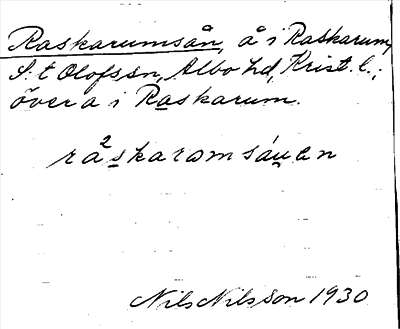 Raskarumsån, å i Raskarum,
S:t Olofs sn, Albo hd, Krist. l.;
över a i Raskarum.
ra²skaromsáuen
Nils Nilsson 1930